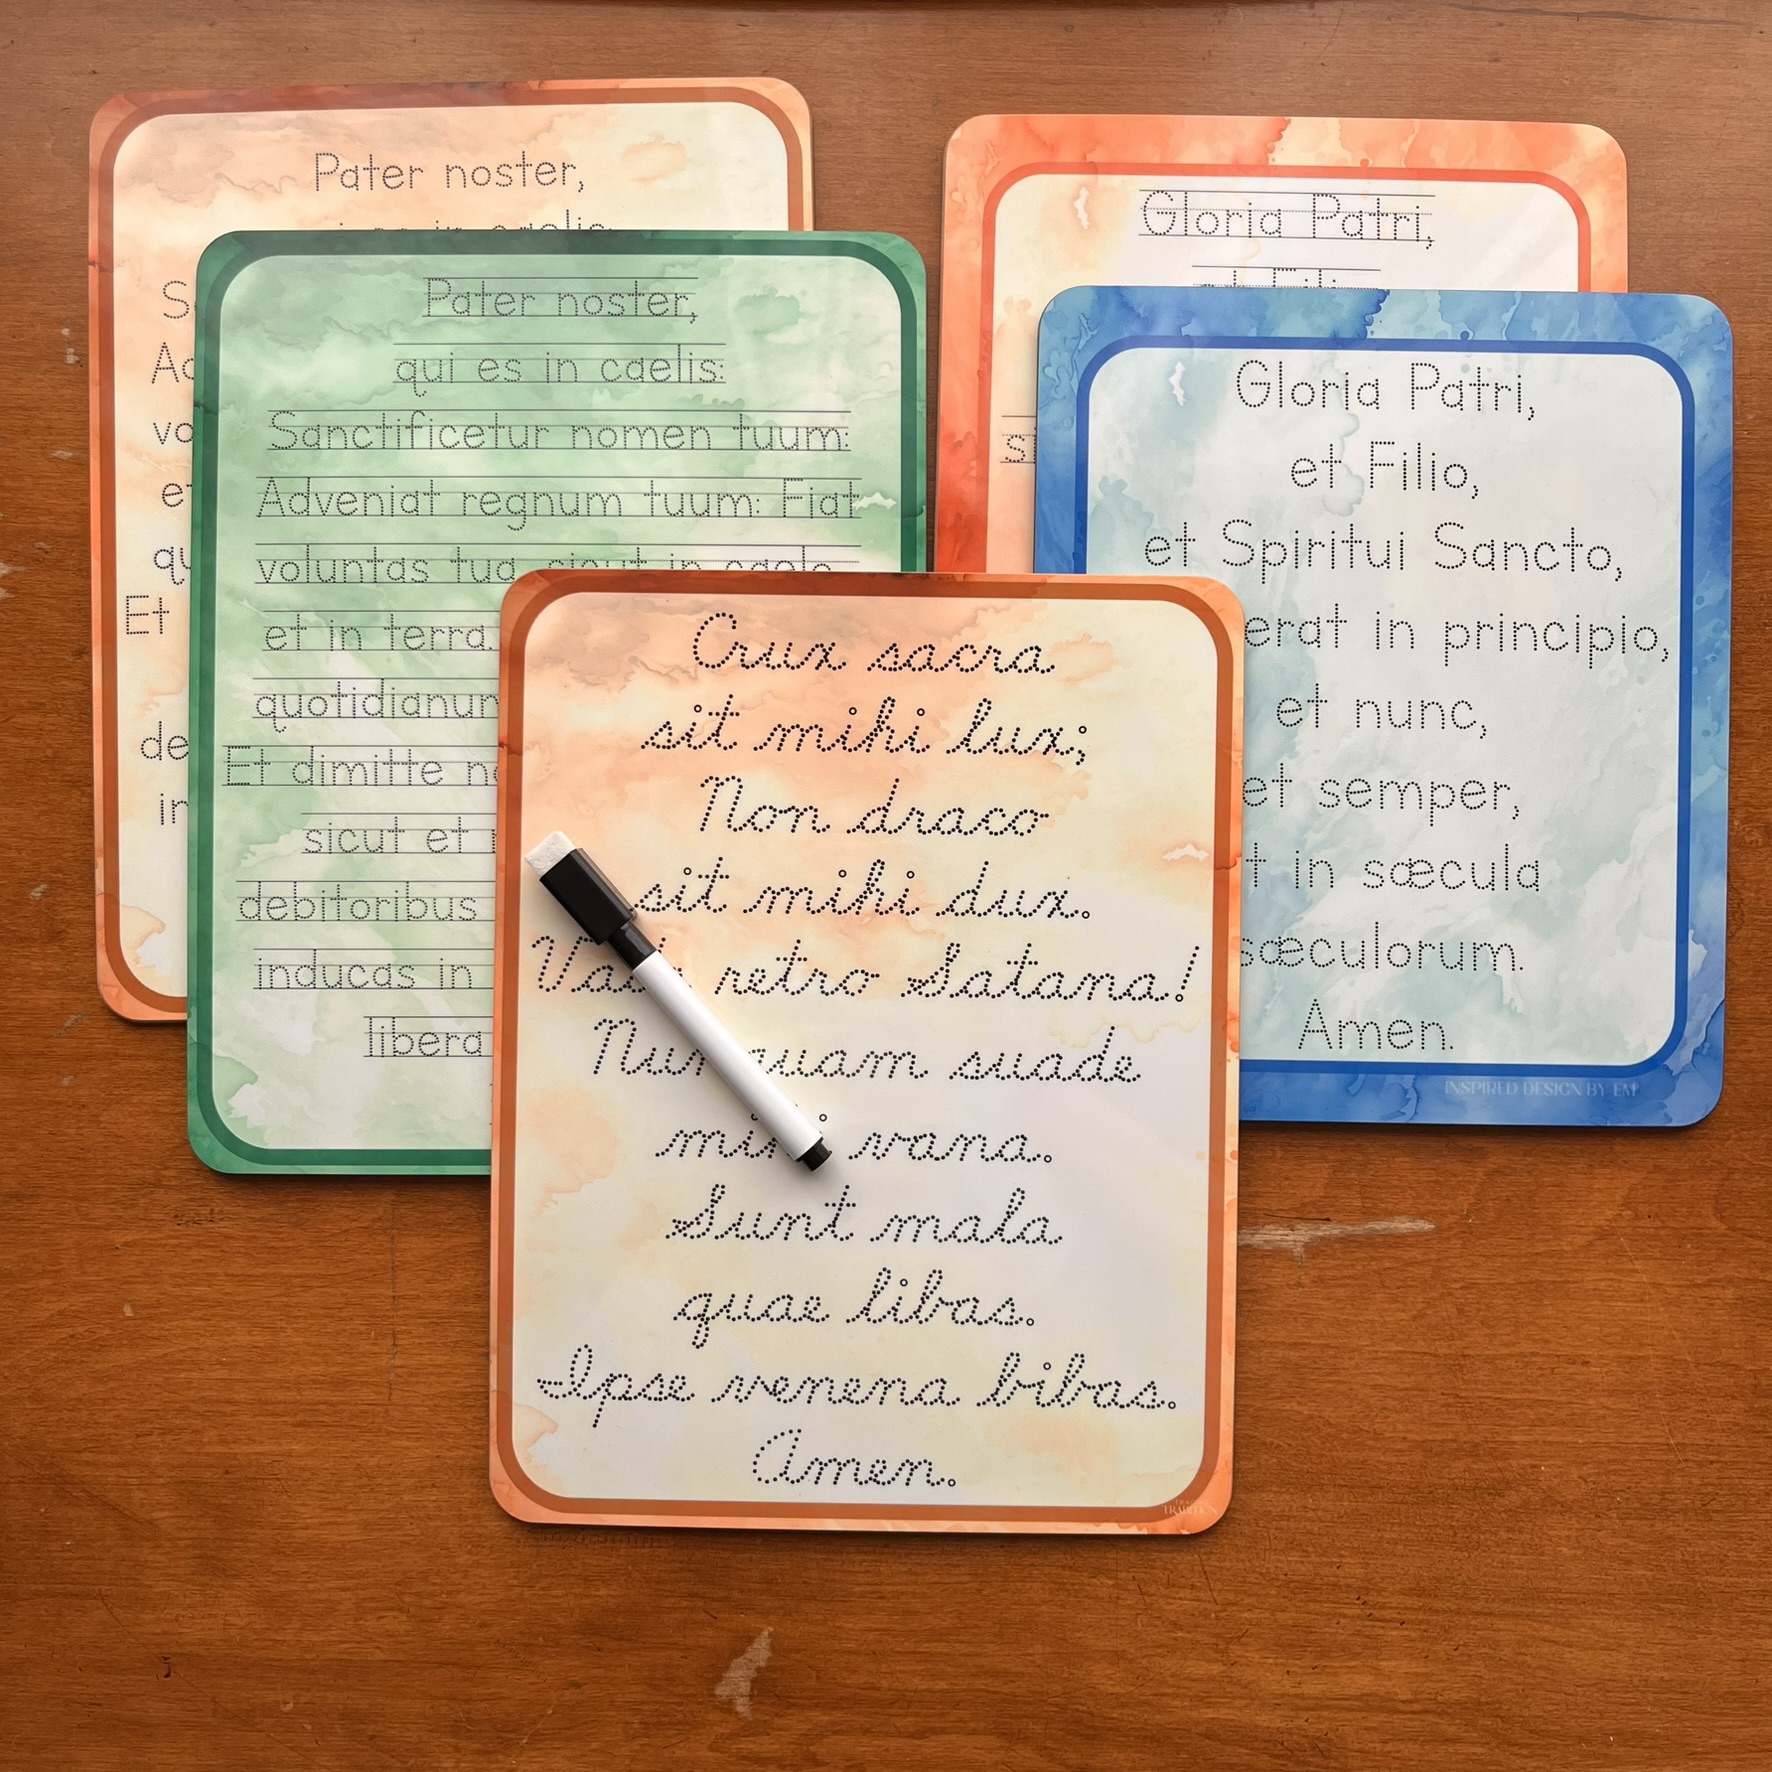 Pater noster,
Et
de
in
Pater noster,
qui es in caelis:
Sanctificetur nomen tuum:
Adveniat regnum tuum: Fiat
voluntas tua, sicut in caelo
et in terra.
quotidianum
Et dimitte
sicut et
debitoribus
inducas in
libera
Gloria Patri,
et Filio,
Gloria Patri,
et Filio,
et Spiritui Sancto,
erat in principio,
et nunc,
et semper,
in sæcula
sæculorum.
Amen.
INSPIRED DESIGN BY EM
Crux sacra
sit mihi lux;
Non draco
sit mihi dux.
retro Satana!
suade
vana.
Sunt mala
quae libas.
Ipse venena bibas.
Amen.
TRADITION